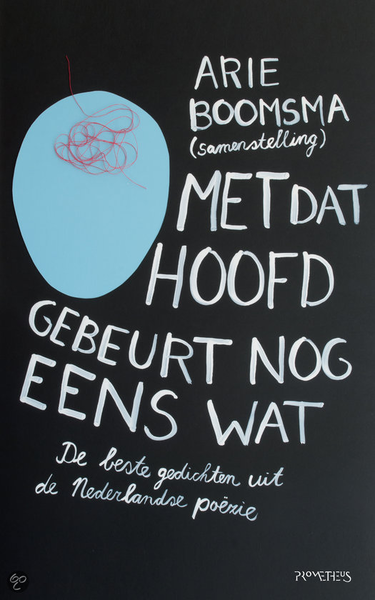 ARIE
BOOMSMA
(samenstelling)
MET DAT
HOOFD
GEBEURT NOG
EENS WAT
De beste gedichten uit
de Nederlandse poëzie
PROMETHEUS